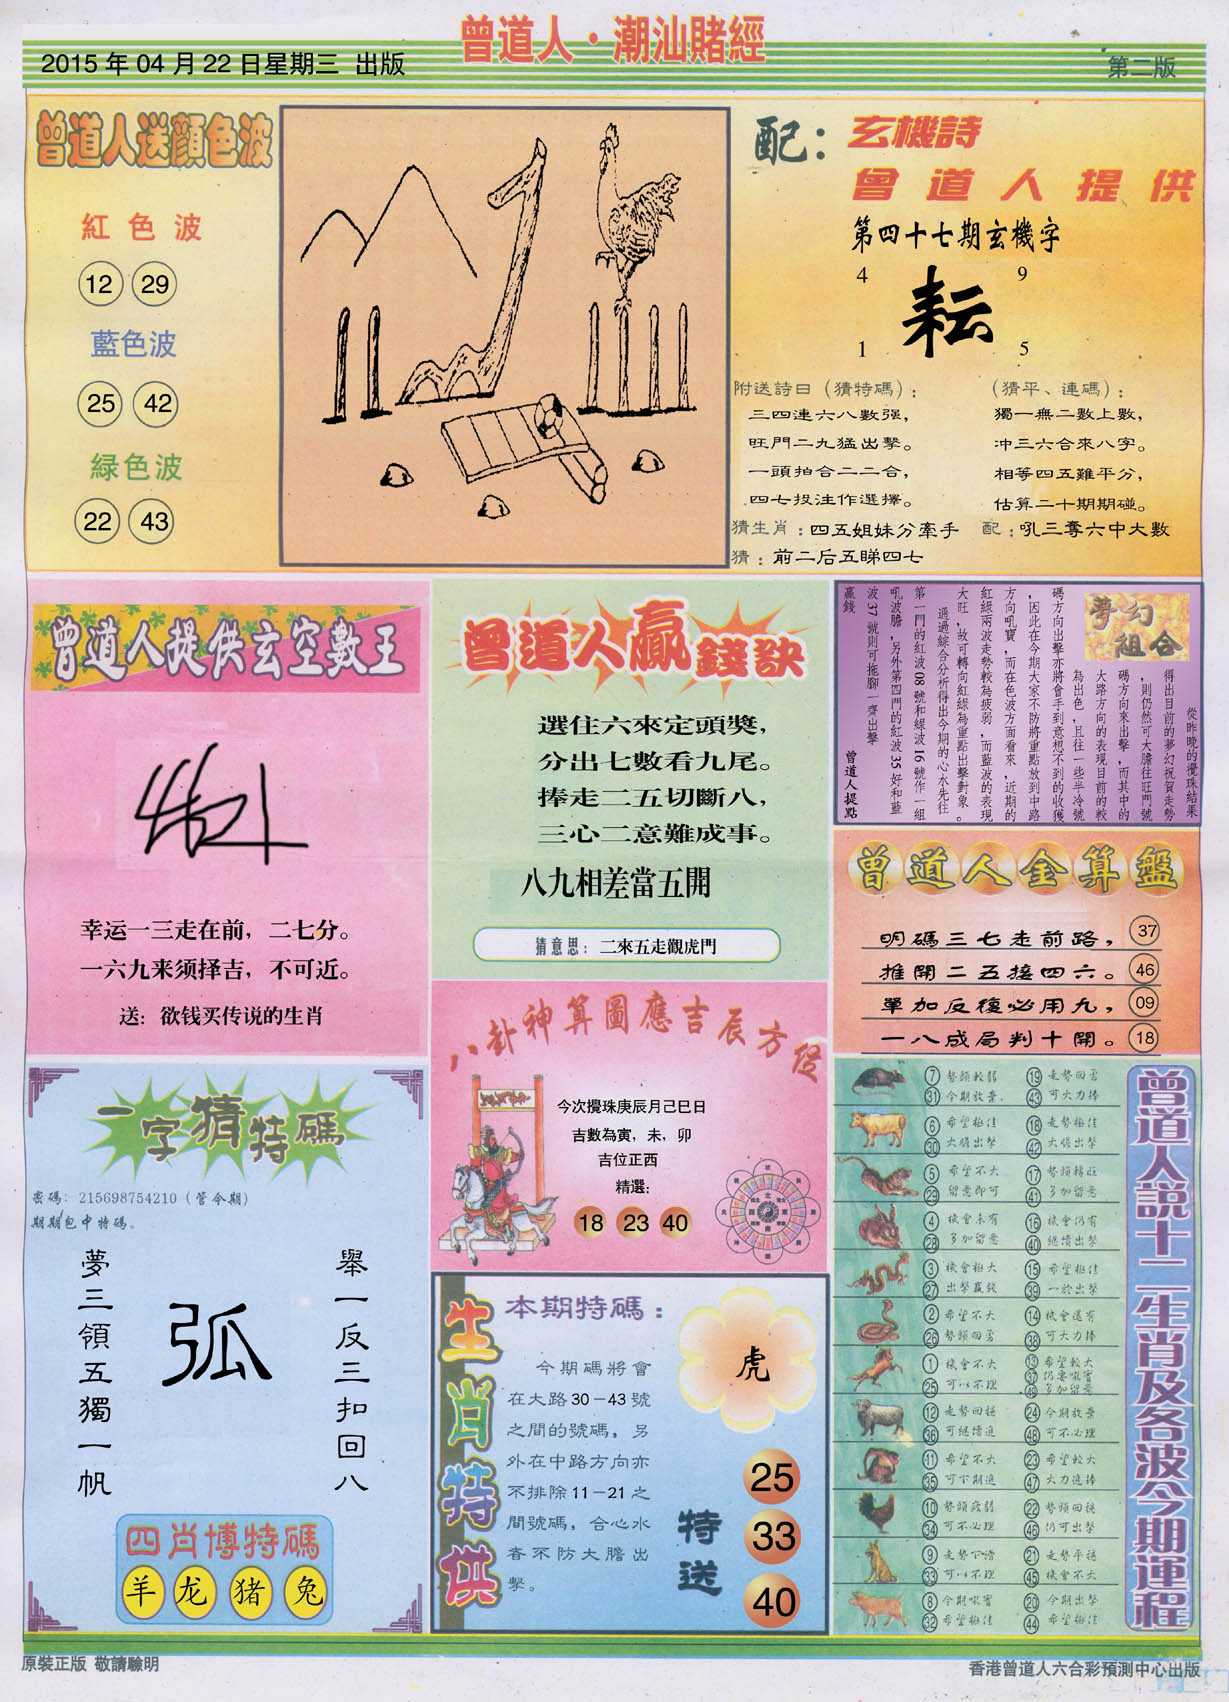 2015 年 04 月 22 日星期三 出版
曾道人·潮汕賭經
第二版
曾道人送顔色波
紅色波
12 29
藍色波
25 42
緑色波
22 43
配：玄機詩
曾道人提供
第四十七期玄機字
4 9
耘
1 5
附送詩曰（猜特碼）：
三四連六八數强，
旺門二九猛出擊。
一頭拍合二二合，
四七投注作選擇。
（猜平、連碼）：
獨一無二數上數，
冲三六合來八字。
相等四五難平分，
估算二十期期碰。
猜生肖：四五姐妹分牽手
配：吼三奪六中大數
猜：前二后五睇四七
曾道人提供玄空數王
幸运一三走在前，二七分。
一六九来须择吉，不可近。
送：欲钱买传说的生肖
曾道人贏錢訣
選住六來定頭獎，
分出七數看九尾。
捧走二五切斷八，
三心二意難成事。
八九相差當五開
猜意思：二來五走觀虎門
夢幻組合
從昨晚的攪珠結果
得出目前的夢幻祝賀走勢
，則仍然可大膽往旺門號
碼方向來出擊，而其中的
大路方向的表現目前的較
為出色，且往一些半冷號
碼方向出擊亦將會手到意想不到的收獲
，因此在今期大家不防將重點放到中路
方向吼寶，而在色波方面看來，近期的
紅緑兩波走勢較為疲弱，而藍波的表現
大旺，故可轉向紅緑為重點出擊對象。
通過綜合分析得出今期的心水先往
第一門的紅波 08 號和緑波 16 號作一組
吼波膽，另外第四門的紅波 35 好和藍
波 37 號則可拖脚一齊出擊
贏錢
曾道人提點
曾道人金算盤
明碼三七走前路， 37
推開二五接四六。 46
單加反復必用九， 09
一八成局判十開。 18
八卦神算圖應吉辰方位
今次攪珠庚辰月己巳日
吉數為寅，未，卯
吉位正西
精選：
18 23 40
一字猜特碼
密碼：215698754210（管今期）
期期包中特碼。
舉一反三扣回八
弧
夢三領五獨一帆
四肖博特碼
羊 龙 猪 兔
生肖特供
本期特碼：
虎
今期碼將會
在大路30－43號
之間的號碼，另
外在中路方向亦
不排除11－21之
間號碼，合心水
者不防大膽出
擊。
特送
25
33
40
曾道人説十二生肖及各波今期運程
7 勢頭較弱 19 走勢回勇
31 今期放棄 43 可大力捧
6 希望極佳 18 走勢極佳
30 大膽出擊 42 大膽出擊
5 希望不大 17 勢頭轉旺
29 留意即可 41 多加留意
4 機會未有 16 機會仍有
28 多加留意 40 繼續出擊
3 機會極大 15 希望極佳
27 出擊贏錢 39 一於出擊
2 希望不大 14 機會還有
26 勢頭回勇 38 可大力捧
1 機會不大 13 希望較大
25 可以不理 37 仍要吸實
49 多加留意
12 走勢回穩 24 今期放棄
36 可繼續追 48 可不必理
11 希望不大 23 希望較大
35 可下期追 47 大力追捧
10 勢頭疲弱 22 勢頭回穩
34 可不必理 46 仍可出擊
9 走勢下滑 21 走勢平穩
33 可以不理 45 機會不大
8 今期吸實 20 今期出擊
32 希望極佳 44 希望極佳
原裝正版 敬請驗明
香港曾道人六合彩預測中心出版